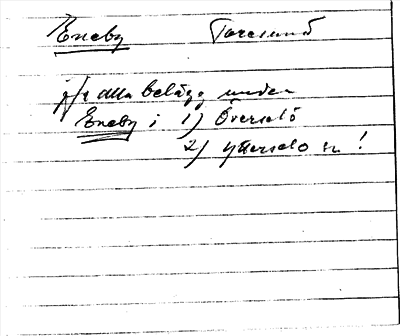 Eneby Toresund
jfr alla belägg under
Eneby i 1) Överselö
2) Ytterselö sn !